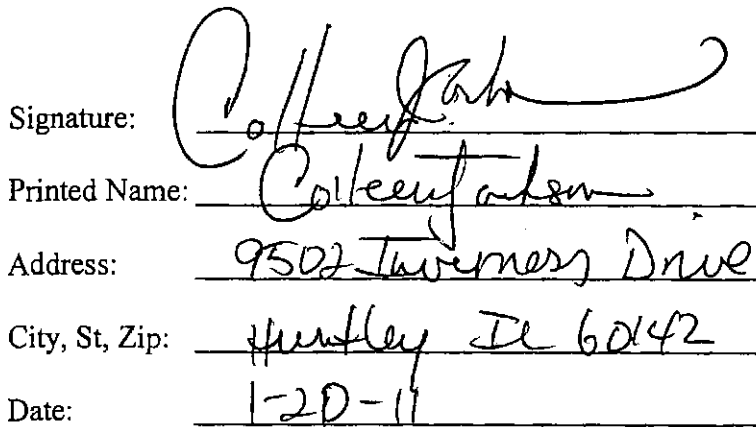 Signature: Colleen Jackson
Printed Name: Colleen Jackson
Address: 9502 Inverness Drive
City, St, Zip: Huntley IL 60142
Date: 1-20-11